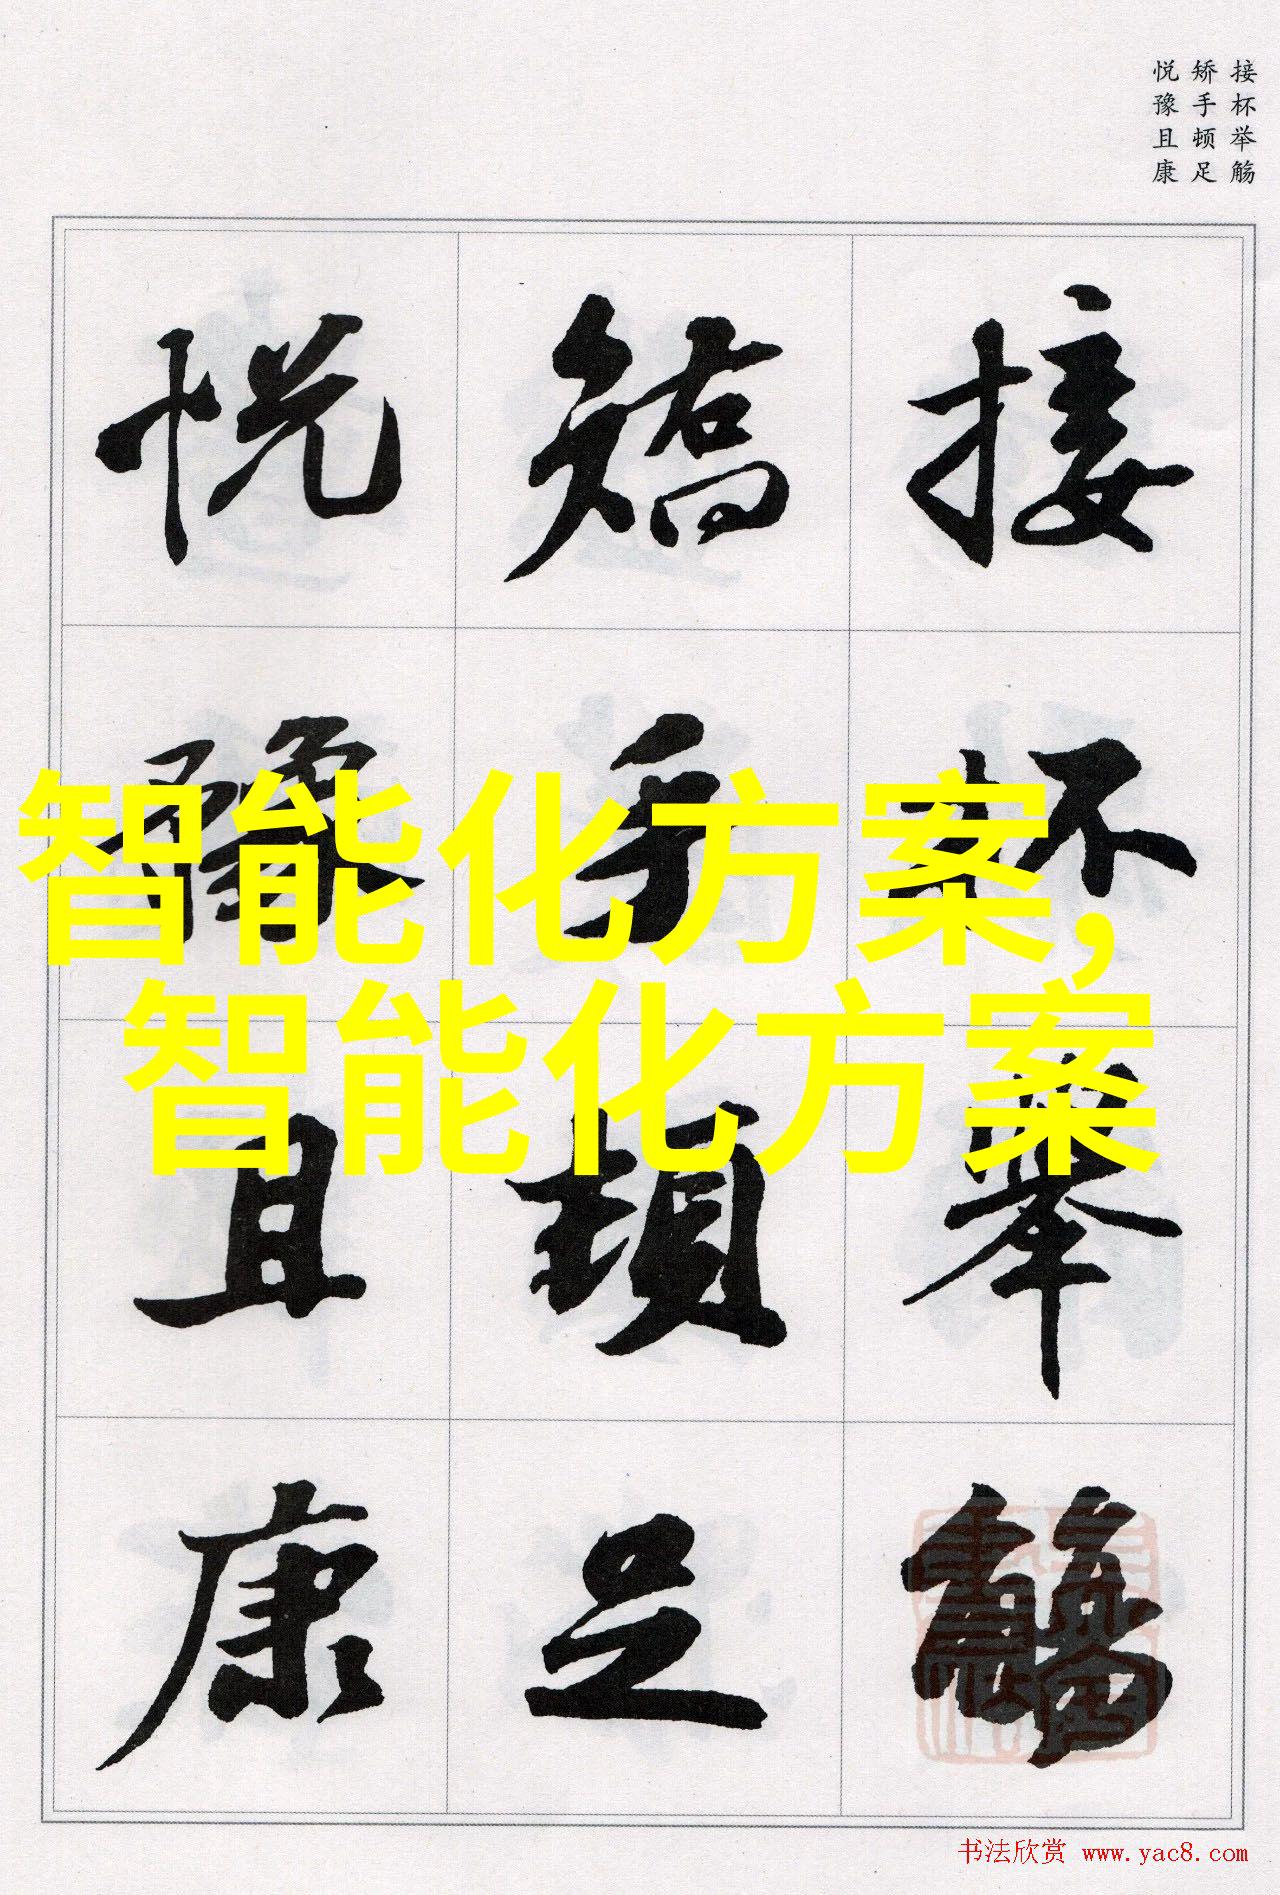 接杯举觞
矫手顿足
悦豫且康
接杯舉觴
矯手頓足
悦豫且康
智能化方案,
智能化方案
书法欣赏 www.yac8.com